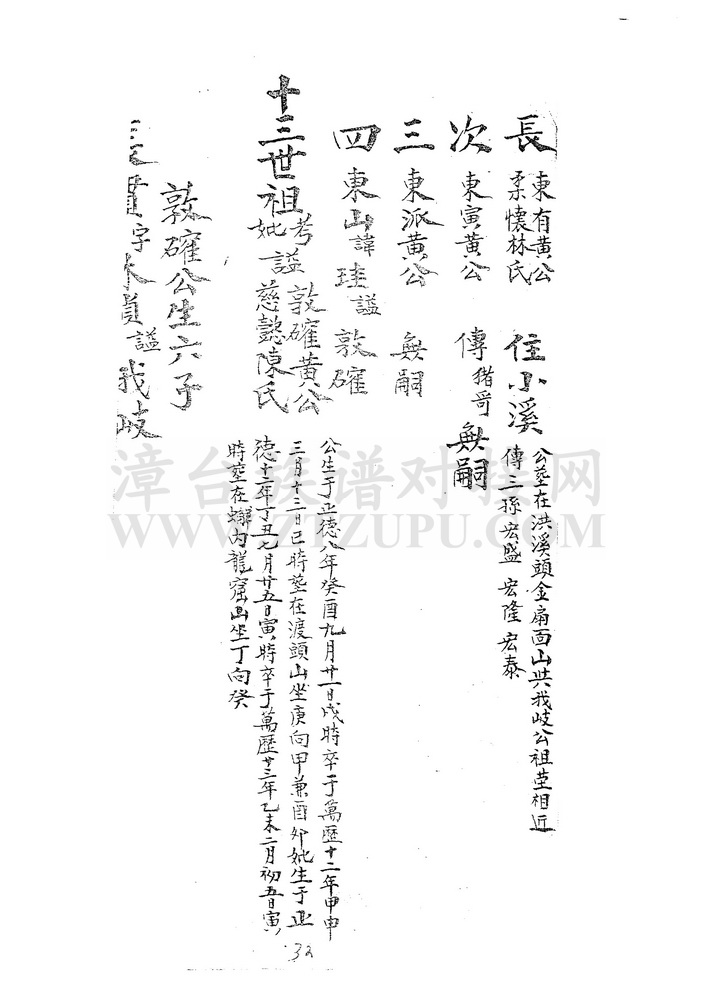 長 東有黃公 柔懷林氏 住小溪 公塋在洪溪頭金扇面山共我岐公祖塋相近
傳三孫宏盛 宏隆 宏泰
次 東寅黃公 傳猪哥 無嗣
三 東派黃公 無嗣
四 東山諱珪謚敦確
十三世祖 考妣謚 敦確黃公 慈懿陳氏
公生于正德八年癸酉九月廿一日戌時卒于萬歷十二年甲申
三月十三日巳時塋在渡頭山坐庚向甲兼酉卯妣生于正
德十二年丁丑七月廿五日寅時卒于萬歷廿三年乙未二月初五日寅
時塋在 內龍窟山坐丁向癸
敦確公生六子
字 謚我岐
漳台族谱对接网
WWW.ZTZUPU.COM
32